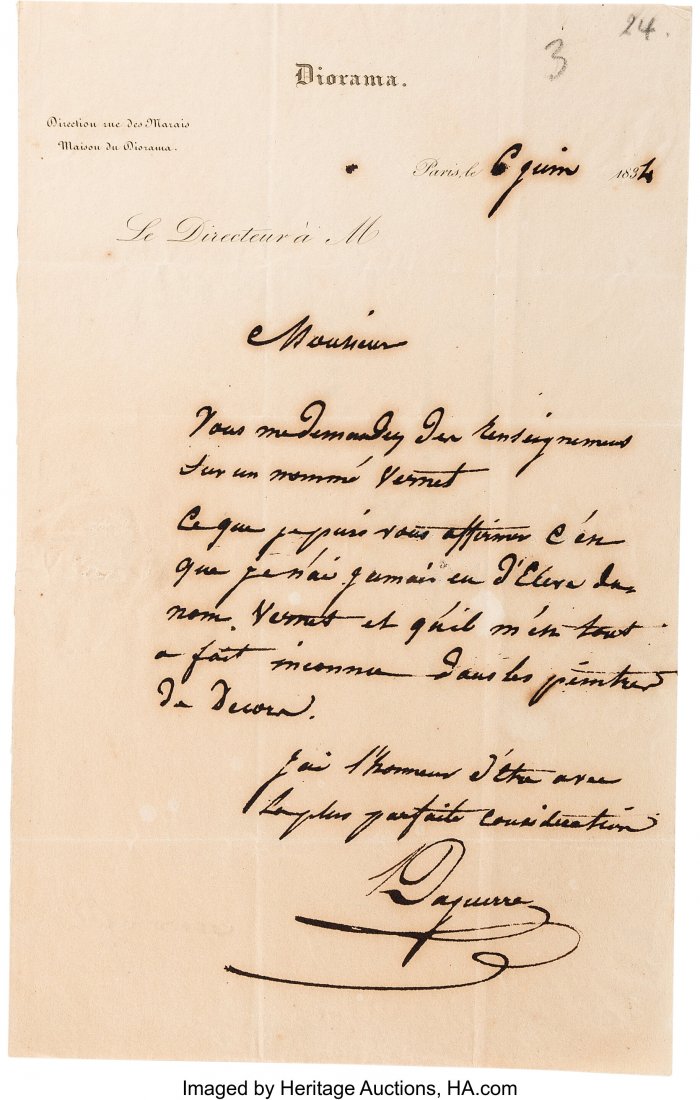 24.
3
Diorama.
Direction rue des Marais
Maison du Diorama.
Paris, le 6 juin 1834
Le Directeur à M
Monsieur
Vous me demandez des renseignemens
sur un nommé Vernet
Ce que je puis vous affirmer c'est
que je n'ai jamais eu d'Eleve du
nom, Vernet et qu'il m'est tout
a fait inconnu dans les peintres
de Decors.
J'ai l'honneur d'être avec
la plus parfaite consideration
Daguerre
Imaged by Heritage Auctions, HA.com